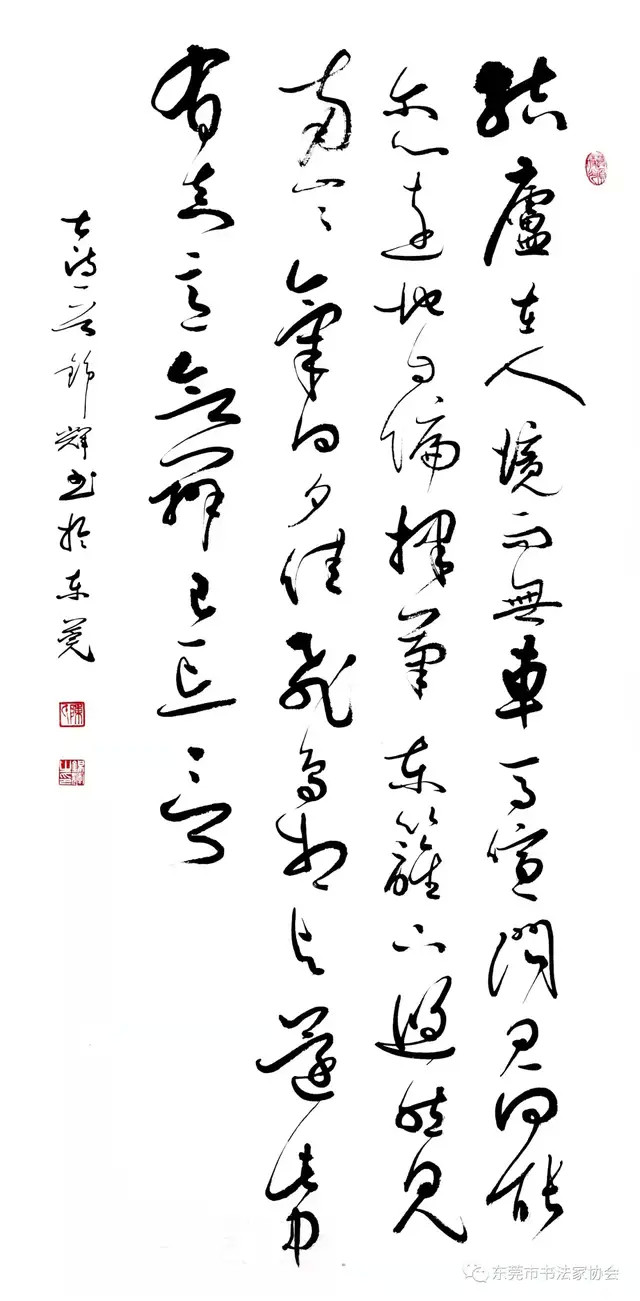 結廬在人境而無車馬喧問君何能
尔心遠地自偏採菊东籬下悠然見
南山々氣日夕佳飛鳥相与還此中
有真意欲辨已忘言
古詩一首錦輝书於东莞
东莞市书法家协会